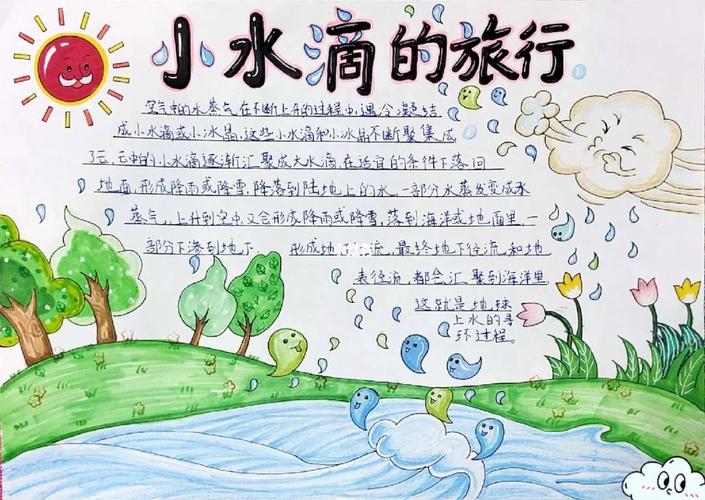 小水滴的旅行
空气中的水蒸气在不断上升的过程中,遇冷凝结
成小水滴或小冰晶,这些小水滴和小冰晶不断聚集成
了云,云中的小水滴逐渐汇聚成大水滴,在适宜的条件下落回
地面,形成降雨或降雪,降落到陆地上的水,一部分水蒸发变成水
蒸气,上升到空中又会形成降雨或降雪,落到海洋或地面里,一
部分下渗到地下, 形成地下径流,最终地下径流和地
表径流都会汇聚到海洋里
这就是地球
上水的寻
环过程。